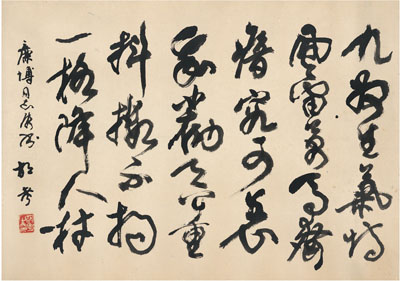 九州生氣恃
風雷萬馬齊
瘖究可哀
我勸天公重
抖擻不拘
一格降人材
博同志